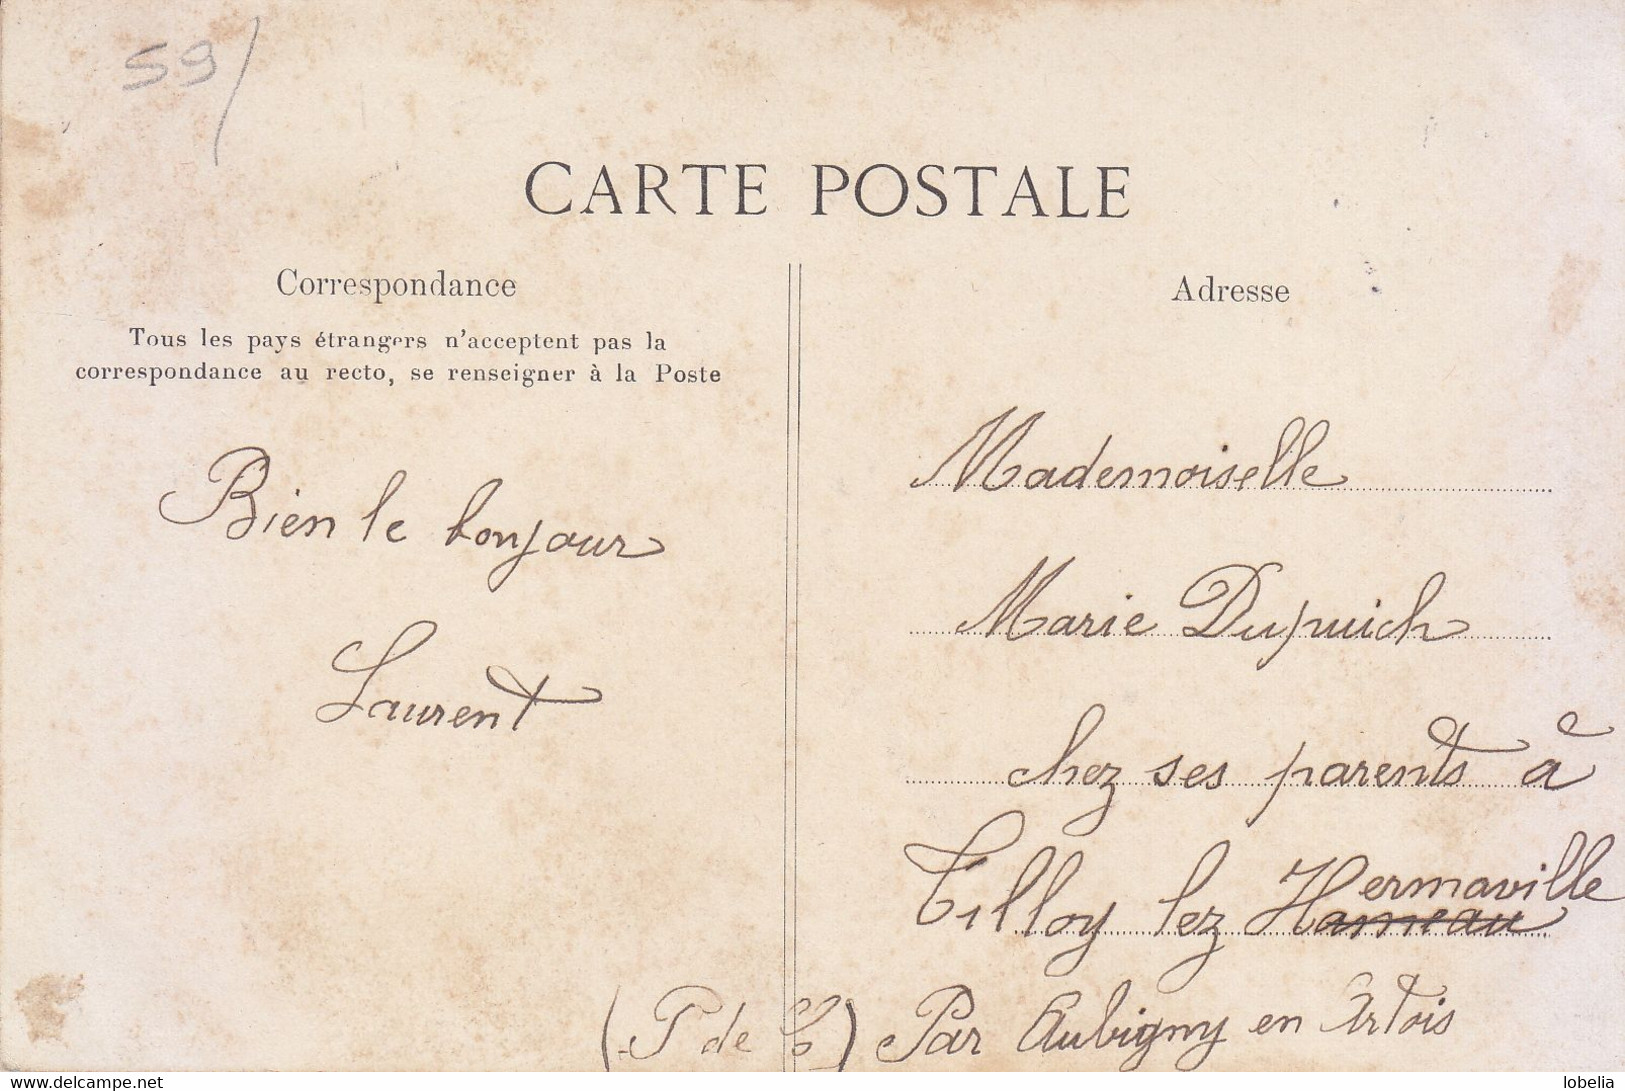 59/
CARTE POSTALE
Correspondance
Tous les pays étrangers n'acceptent pas la
correspondance au recto, se renseigner à la Poste
Bien le bonjour
Laurent
Adresse
Mademoiselle
Marie Dupuich
chez ses parents à
Tilloy lez Hermaville
Hameau
(P de C) Par Aubigny en Artois
www.delcampe.net
lobelia